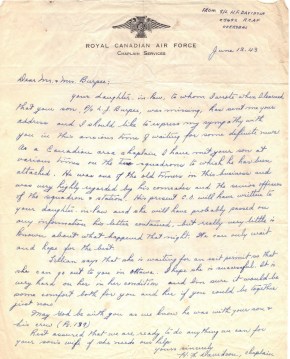 FROM S/L H.R. DAVIDSON
R.C.A.F.
OVERSEAS
ROYAL CANADIAN AIR FORCE
CHAPLAIN SERVICES
June 18. 43
Dear Mr. & Mrs Burpee:
your daughter in law, to whom I wrote when I learned
that your son, F/L L.J. Burpee, was missing, has sent me your
address and I should like to express my sympathy with
you in this anxious time of waiting for some definite news.
As a Canadian area chaplain I have met your son at
various times on the two squadrons to which he has been
attached. He was one of the old timers in this business and
was very highly regarded by his comrades and the senior officers
of the squadron & station. His present C.O. will have written to
your daughter in law and she will have probably passed on
any information his letter contained, but really very little is
known about what happened that night. We can only wait
and hope for the best.
Lillian says that she is waiting for an exit permit so that
she can go out to you in Ottawa. I hope she is successful. It is
very hard on her in her condition and I'm sure it would be
some comfort both for you and her if you could be together
just now.
May God be with you as we know he was with your son &
his crew (Ps. 139)
Rest assured that we are ready to do anything we can for
your son's wife if she needs our help
Yours sincerely
H.R. Davidson, Chaplain